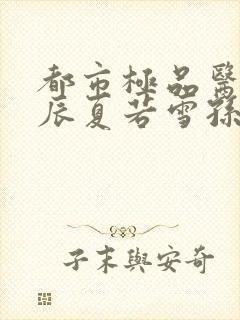 都市極品醫
辰夏若雪孫
子末與安奇